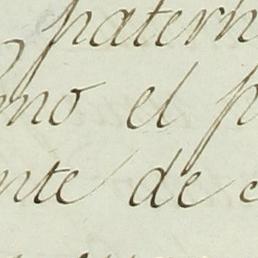 patern
no el p
nte de e